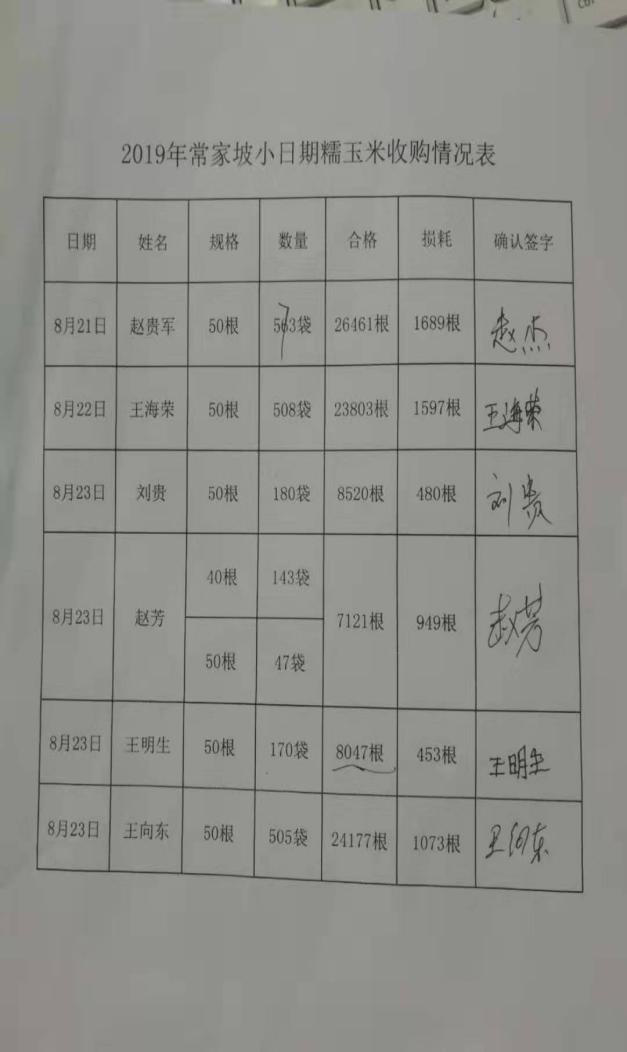 2019年常家坡小日期糯玉米收购情况表
日期 姓名 规格 数量 合格 损耗 确认签字
8月21日 赵贵军 50根 563袋 26461根 1689根 赵杰
8月22日 王海荣 50根 508袋 23803根 1597根 王海荣
8月23日 刘贵 50根 180袋 8520根 480根 刘贵
8月23日 赵芳 40根 143袋 7121根 949根 赵芳
50根 47袋
8月23日 王明生 50根 170袋 8047根 453根 王明生
8月23日 王向东 50根 505袋 24177根 1073根 王向东